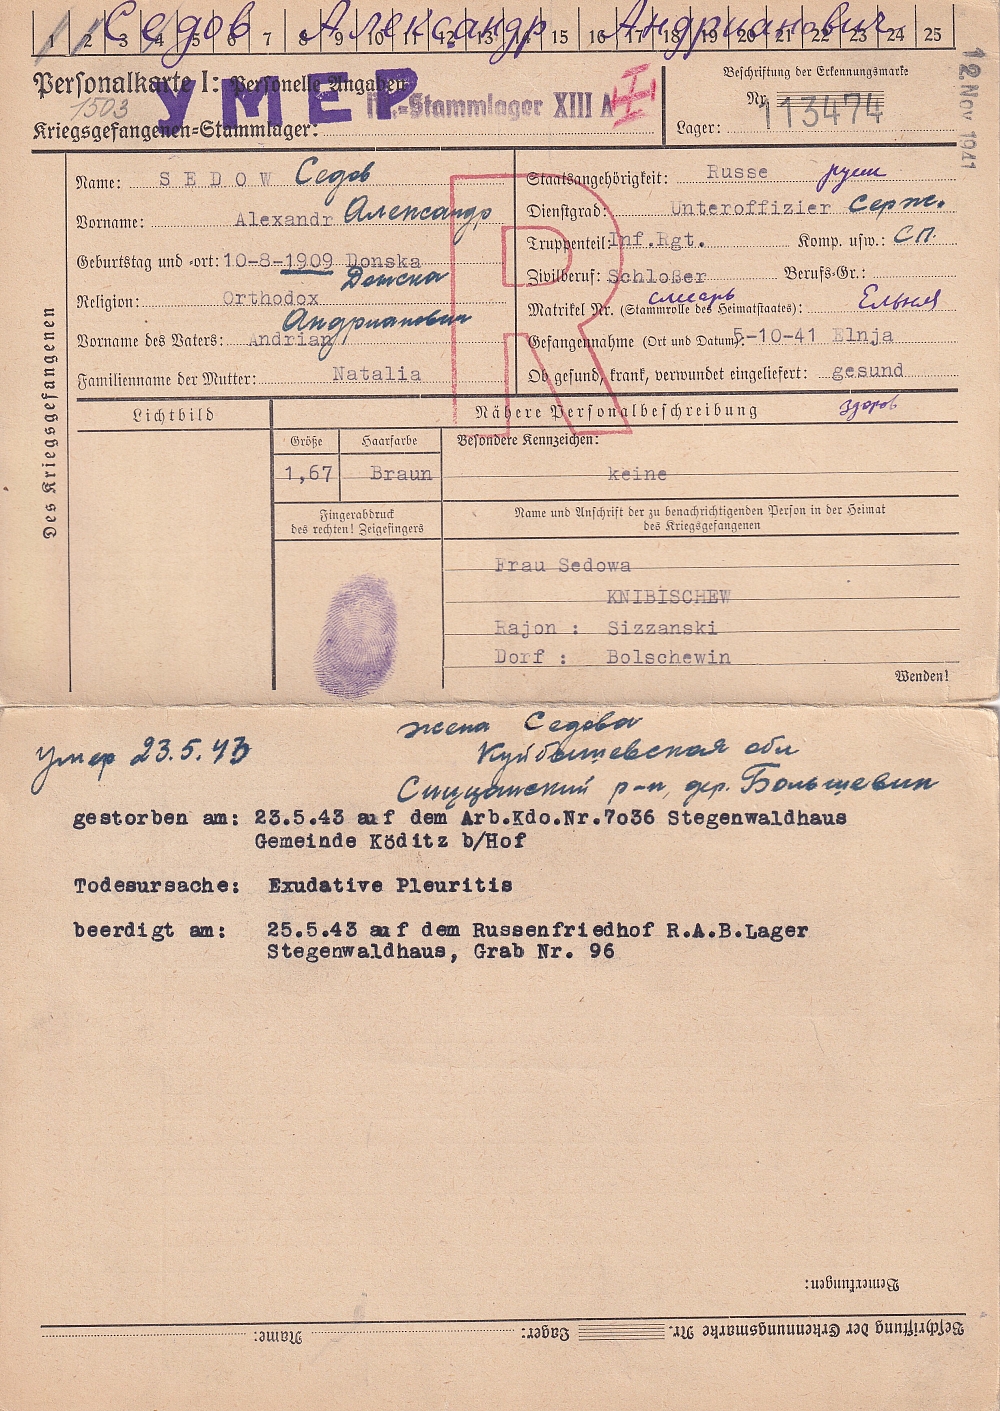 Седов Александр Андрианович
1 2 3 4 5 6 7 8 9 10 11 12 13 14 15 16 17 18 19 20 21 22 23 24 25
12. Nov 1941
Personalkarte I: Personelle Angaben
Beschriftung der Erkennungsmarke
1503
УМЕР
-Stammlager XIII A
Nr. 113474
Kriegsgefangenen-Stammlager:
Lager:
Des Kriegsgefangenen
Name: SEDOW Седов
Staatsangehörigkeit: Russe русск
Vorname: Alexandr Александр
Dienstgrad: Unteroffizier Серж.
Truppenteil: Inf.Rgt. Komp. usw.: СП.
Geburtstag und -ort: 10-8-1909 Donska
Донска
Zivilberuf: Schloßer Berufs-Gr.:
слесарь
Religion: Orthodox
Matrikel Nr. (Stammrolle des Heimatstaates): Ельня
Андрианович
Vorname des Vaters: Andrian
Gefangennahme (Ort und Datum): 5-10-41 Elnja
Familienname der Mutter: Natalia
Ob gesund, krank, verwundet eingeliefert: gesund
здоров
R
Lichtbild
Nähere Personalbeschreibung
Größe
Haarfarbe
Besondere Kennzeichen:
1,67
Braun
keine
Fingerabdruck
des rechten! Zeigefingers
Name und Anschrift der zu benachrichtigenden Person in der Heimat
des Kriegsgefangenen
Frau Sedowa
KNIBISCHEW
Rajon : Sizzanski
Dorf : Bolschewin
Wenden!
жена Седова
Умер 23.5.43
Куйбышевская обл
Сиццанский р-н, дер. Большевин
gestorben am: 23.5.43 auf dem Arb.Kdo.Nr.7o36 Stegenwaldhaus
Gemeinde Köditz b/Hof
Todesursache: Exudative Pleuritis
beerdigt am: 25.5.43 auf dem Russenfriedhof R.A.B.Lager
Stegenwaldhaus, Grab Nr. 96
Bemerkungen:
Beschriftung der Erkennungsmarke Nr. Lager: Name: